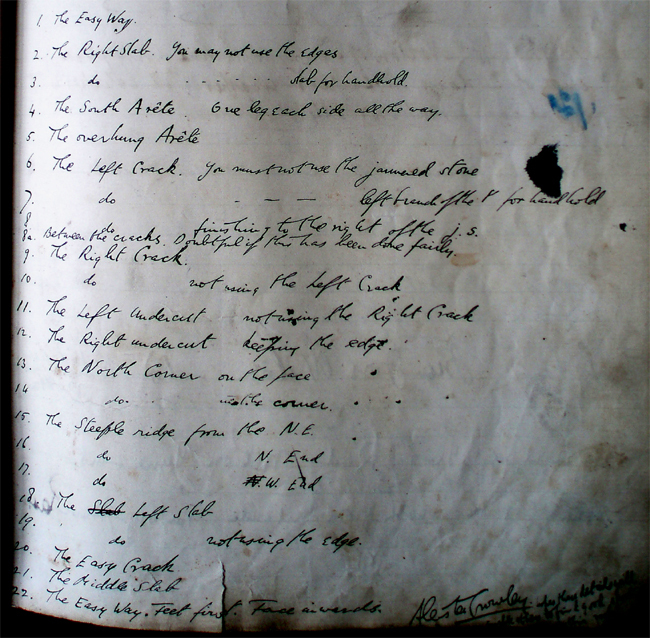 1. The Easy Way.
2. The Right Slab. You may not use the edges
3. do - - - - - - slab for handhold.
4. The South Arête. One leg each side all the way.
5. The overhung Arête
6. The Left Crack. You must not use the jammed stone
7. do - — — left branch of the Y for handhold
8 do finishing to the right of the j.s.
8a. Between the cracks. Doubtful if this has been done fairly.
9. The Right Crack.
10. do not using the Left Crack
11. The Left Undercut not using the Right Crack
12. The Right undercut keeping the edge.
13. The North Corner on the face
14 do. corner.
15. The Steeple ridge from the N.E.
16. do N. End
17. do N.W. End
18. The Slab Left Slab
19. do not using the edge.
20. The Easy Crack
21. The Middle Slab
22. The Easy Way. Feet first. Face inwards.
Aleister Crowley